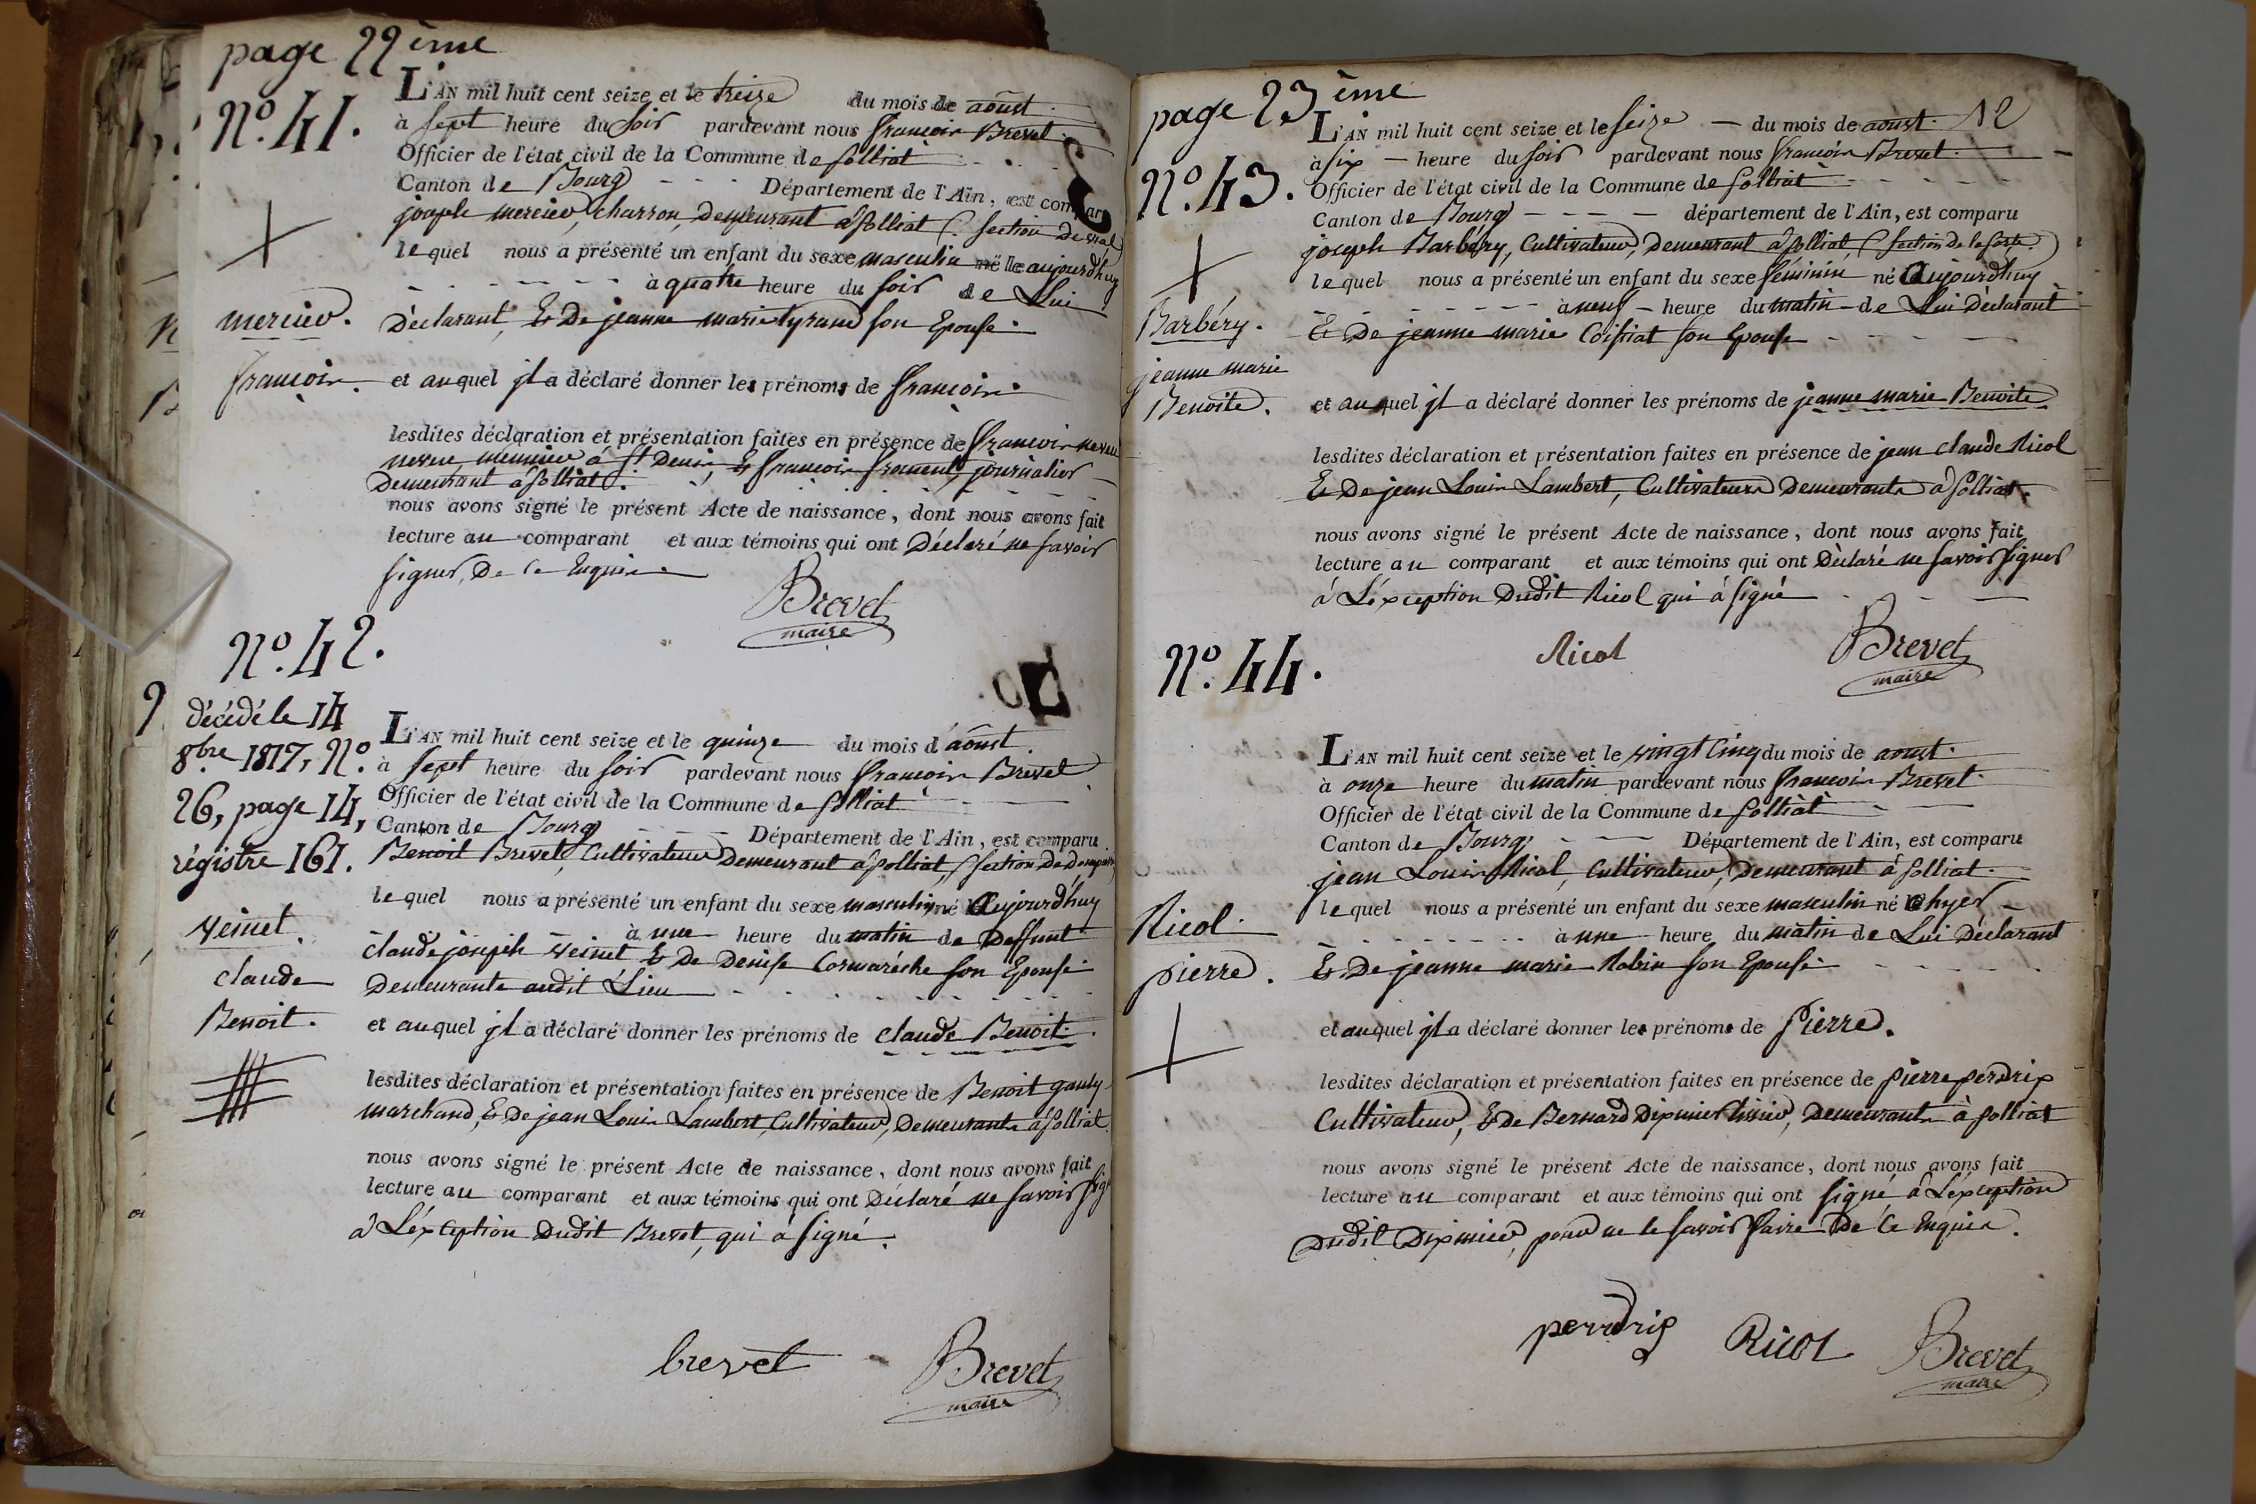 page 22ème
N.º 41.
L'AN mil huit cent seize et le treize du mois de aoust.
à sept heure du soir pardevant nous françois Brevet
Officier de l'état civil de la Commune de polliat
Canton de Bourg Département de l'Ain, est comparu
joseph mercier, charron, Demeurant à polliat (section
lequel nous a présenté un enfant du sexe masculin né le aujourdhuy
à quatre heure du soir de Lui
mercier.
Déclarant, Et De jeanne marie tyrand son Epouse.
françois.
et auquel jl a déclaré donner les prénoms de françois.
lesdites déclaration et présentation faites en présence de françois neveu
neveu meunier à St Denis, Et françois froment, journalier
Demeurant à polliat.
nous avons signé le présent Acte de naissance, dont nous avons fait
lecture au comparant et aux témoins qui ont Déclaré ne savoir
signer, De ce Enquis
Brevet
maire
N.º 42.
décédé le 14
8bre 1817, N.º
26, page 14,
régistre 161.
L'AN mil huit cent seize et le quinze du mois d'aoust.
à sept heure du soir pardevant nous françois Brevet
Officier de l'état civil de la Commune de polliat
Canton de Bourg Département de l'Ain, est comparu
Benoit Brevet, Cultivateur Demeurant à polliat, (section De
lequel nous a présenté un enfant du sexe masculin né aujourd'huy
veinet.
à une heure du matin de Deffunt
claude joseph veinet Et De Denise Cormarêche son Epouse
claude
Demeurante audit Lieu
Benoit.
et auquel jl a déclaré donner les prénoms de claude Benoit.
lesdites déclaration et présentation faites en présence de Benoit gauly
marchand, Et De jean Louis Lambert, Cultivateur, Demeurants à polliat.
nous avons signé le présent Acte de naissance, dont nous avons fait
lecture au comparant et aux témoins qui ont Déclaré ne savoir sig
à L'éxception Dudit Brevet, qui à signé.
brevet
Brevet
maire
page 23ème
12
N.º 43.
L'AN mil huit cent seize et le seize du mois de aoust.
à six heure du soir pardevant nous françois Brevet.
Officier de l'état civil de la Commune de polliat
Canton de Bourg département de l'Ain, est comparu
joseph Barbéry, Cultivateur, Demeurant à polliat, (section de
lequel nous a présenté un enfant du sexe féminin né aujourdhuy
à neuf heure du matin de Lui Déclarant
Barbéry.
Et De jeanne marie Coissiat son Epouse
jeanne marie
Benoite.
et auquel jl a déclaré donner les prénoms de jeanne marie Benoite
lesdites déclaration et présentation faites en présence de jean claude Nicol
Et De jean Louis Lambert, Cultivateurs Demeurants à polliat.
nous avons signé le présent Acte de naissance, dont nous avons fait
lecture au comparant et aux témoins qui ont Déclaré ne savoir signer
à L'éxception Dudit Nicol qui à signé
Nicol
Brevet
maire
N.º 44.
L'AN mil huit cent seize et le vingt Cinq du mois de aoust.
à onze heure du matin pardevant nous françois Brevet
Officier de l'état civil de la Commune de polliat
Canton de Bourg Département de l'Ain, est comparu
jean Louis Nicol, Cultivateur, Demeurant à polliat.
lequel nous a présenté un enfant du sexe masculin né hyer
Nicol.
à une heure du matin de Lui Déclarant
pierre.
Et De jeanne marie Robin son Epouse
et auquel jl a déclaré donner les prénoms de Pierre.
lesdites déclaration et présentation faites en présence de pierre perdrix
Cultivateur, Et de Bernard Dixmier tissier, Demeurants à polliat
nous avons signé le présent Acte de naissance, dont nous avons fait
lecture au comparant et aux témoins qui ont signé à L'éxception
Dudit Dixmier, pour ne le savoir faire De Ce Enquis.
perdrix
Nicol
Brevet
maire